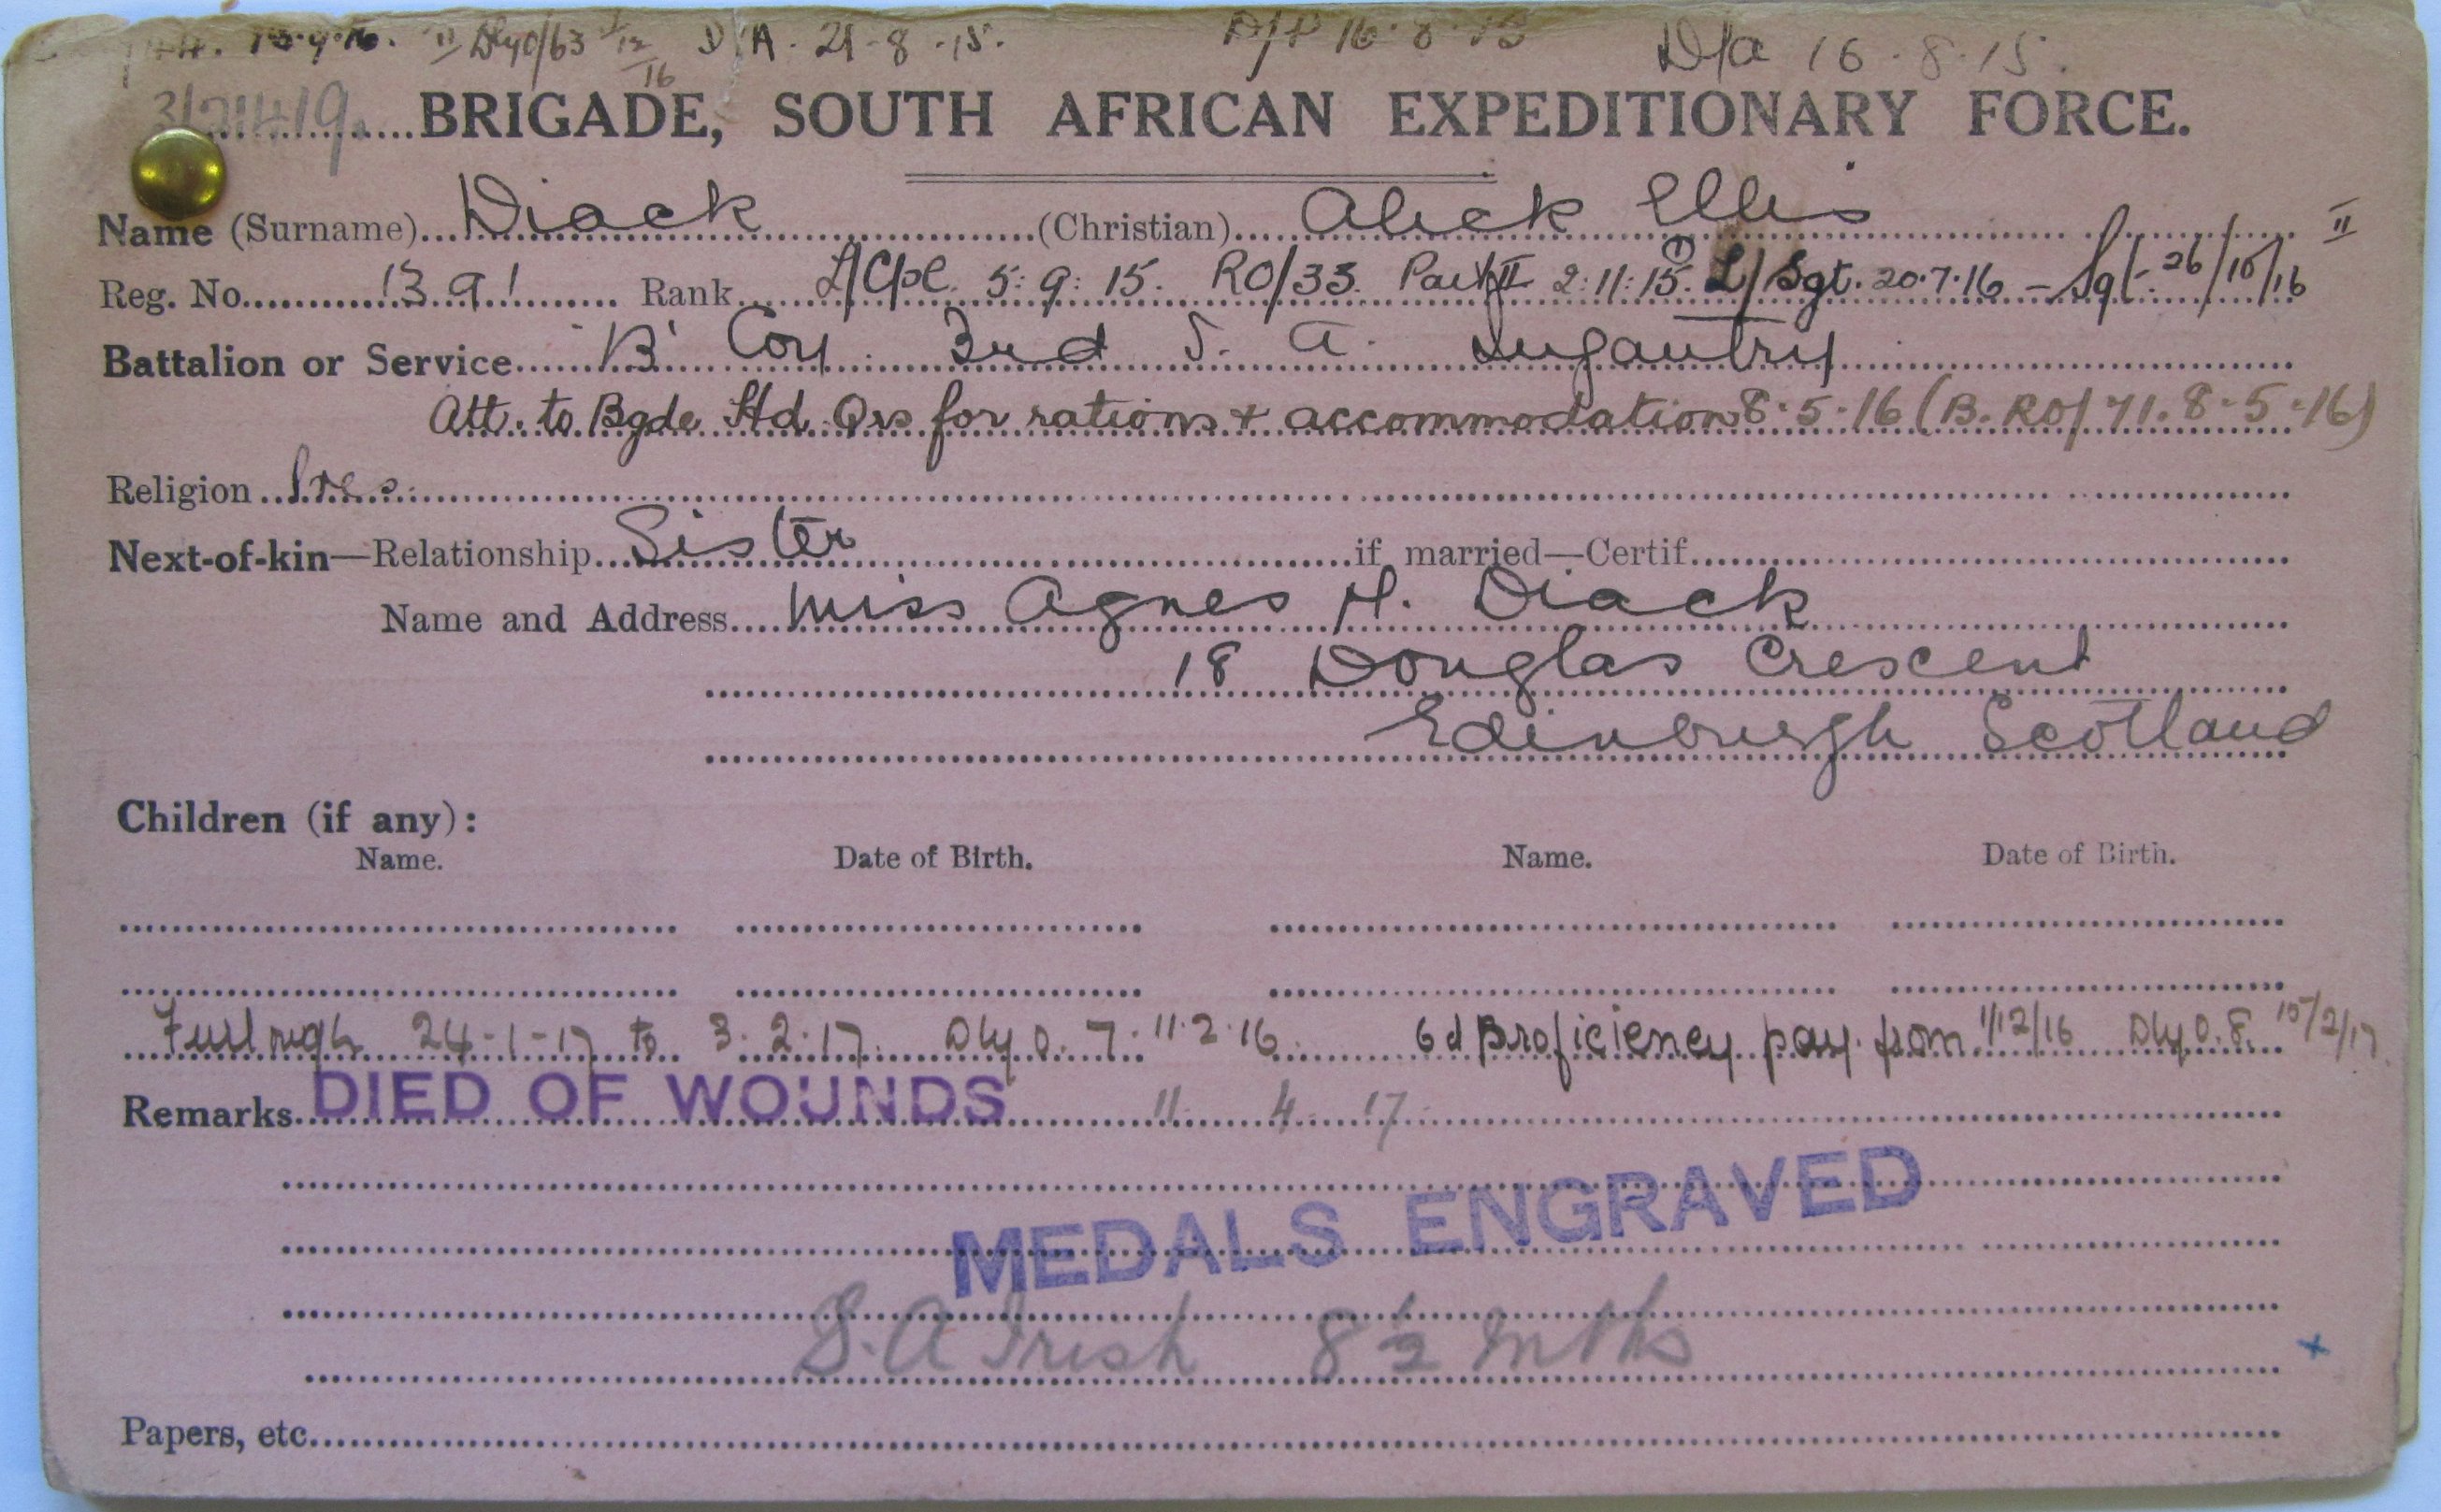 15.9.16. II Dly O/63 D/A. 21-8-15. D/P 16.8.15 D/a 16.8.15.
BRIGADE, SOUTH AFRICAN EXPEDITIONARY FORCE.
Name (Surname) Diack (Christian) Alick Ellis II
Reg. No. 1391 Rank L/Cpl. 5:9:15. RO/33. Part II 2:11:15. L/Sgt. 20.7.16 - Sgt. 26/10/16
Battalion or Service 'B' Coy. 3rd S. A. Infantry
Att. to Bgde Hd. Qrs for rations + accommodation 8.5.16 (B. RO/71. 8-5-16)
Religion Pres.
Next-of-kin—Relationship Sister if married—Certif.
Name and Address Miss Agnes H. Diack
18 Douglas Crescent
Edinburgh Scotland
Children (if any):
Name. Date of Birth. Name. Date of Birth.
Furlough 24-1-17 to 3.2.17. Dly O. 7. 11.2.16 6d Proficiency pay from 1/12/16 Dly O. 8. 15/2/17
Remarks DIED OF WOUNDS 11. 4. 17
MEDALS ENGRAVED
S.A Irish 8½ mths
Papers, etc.